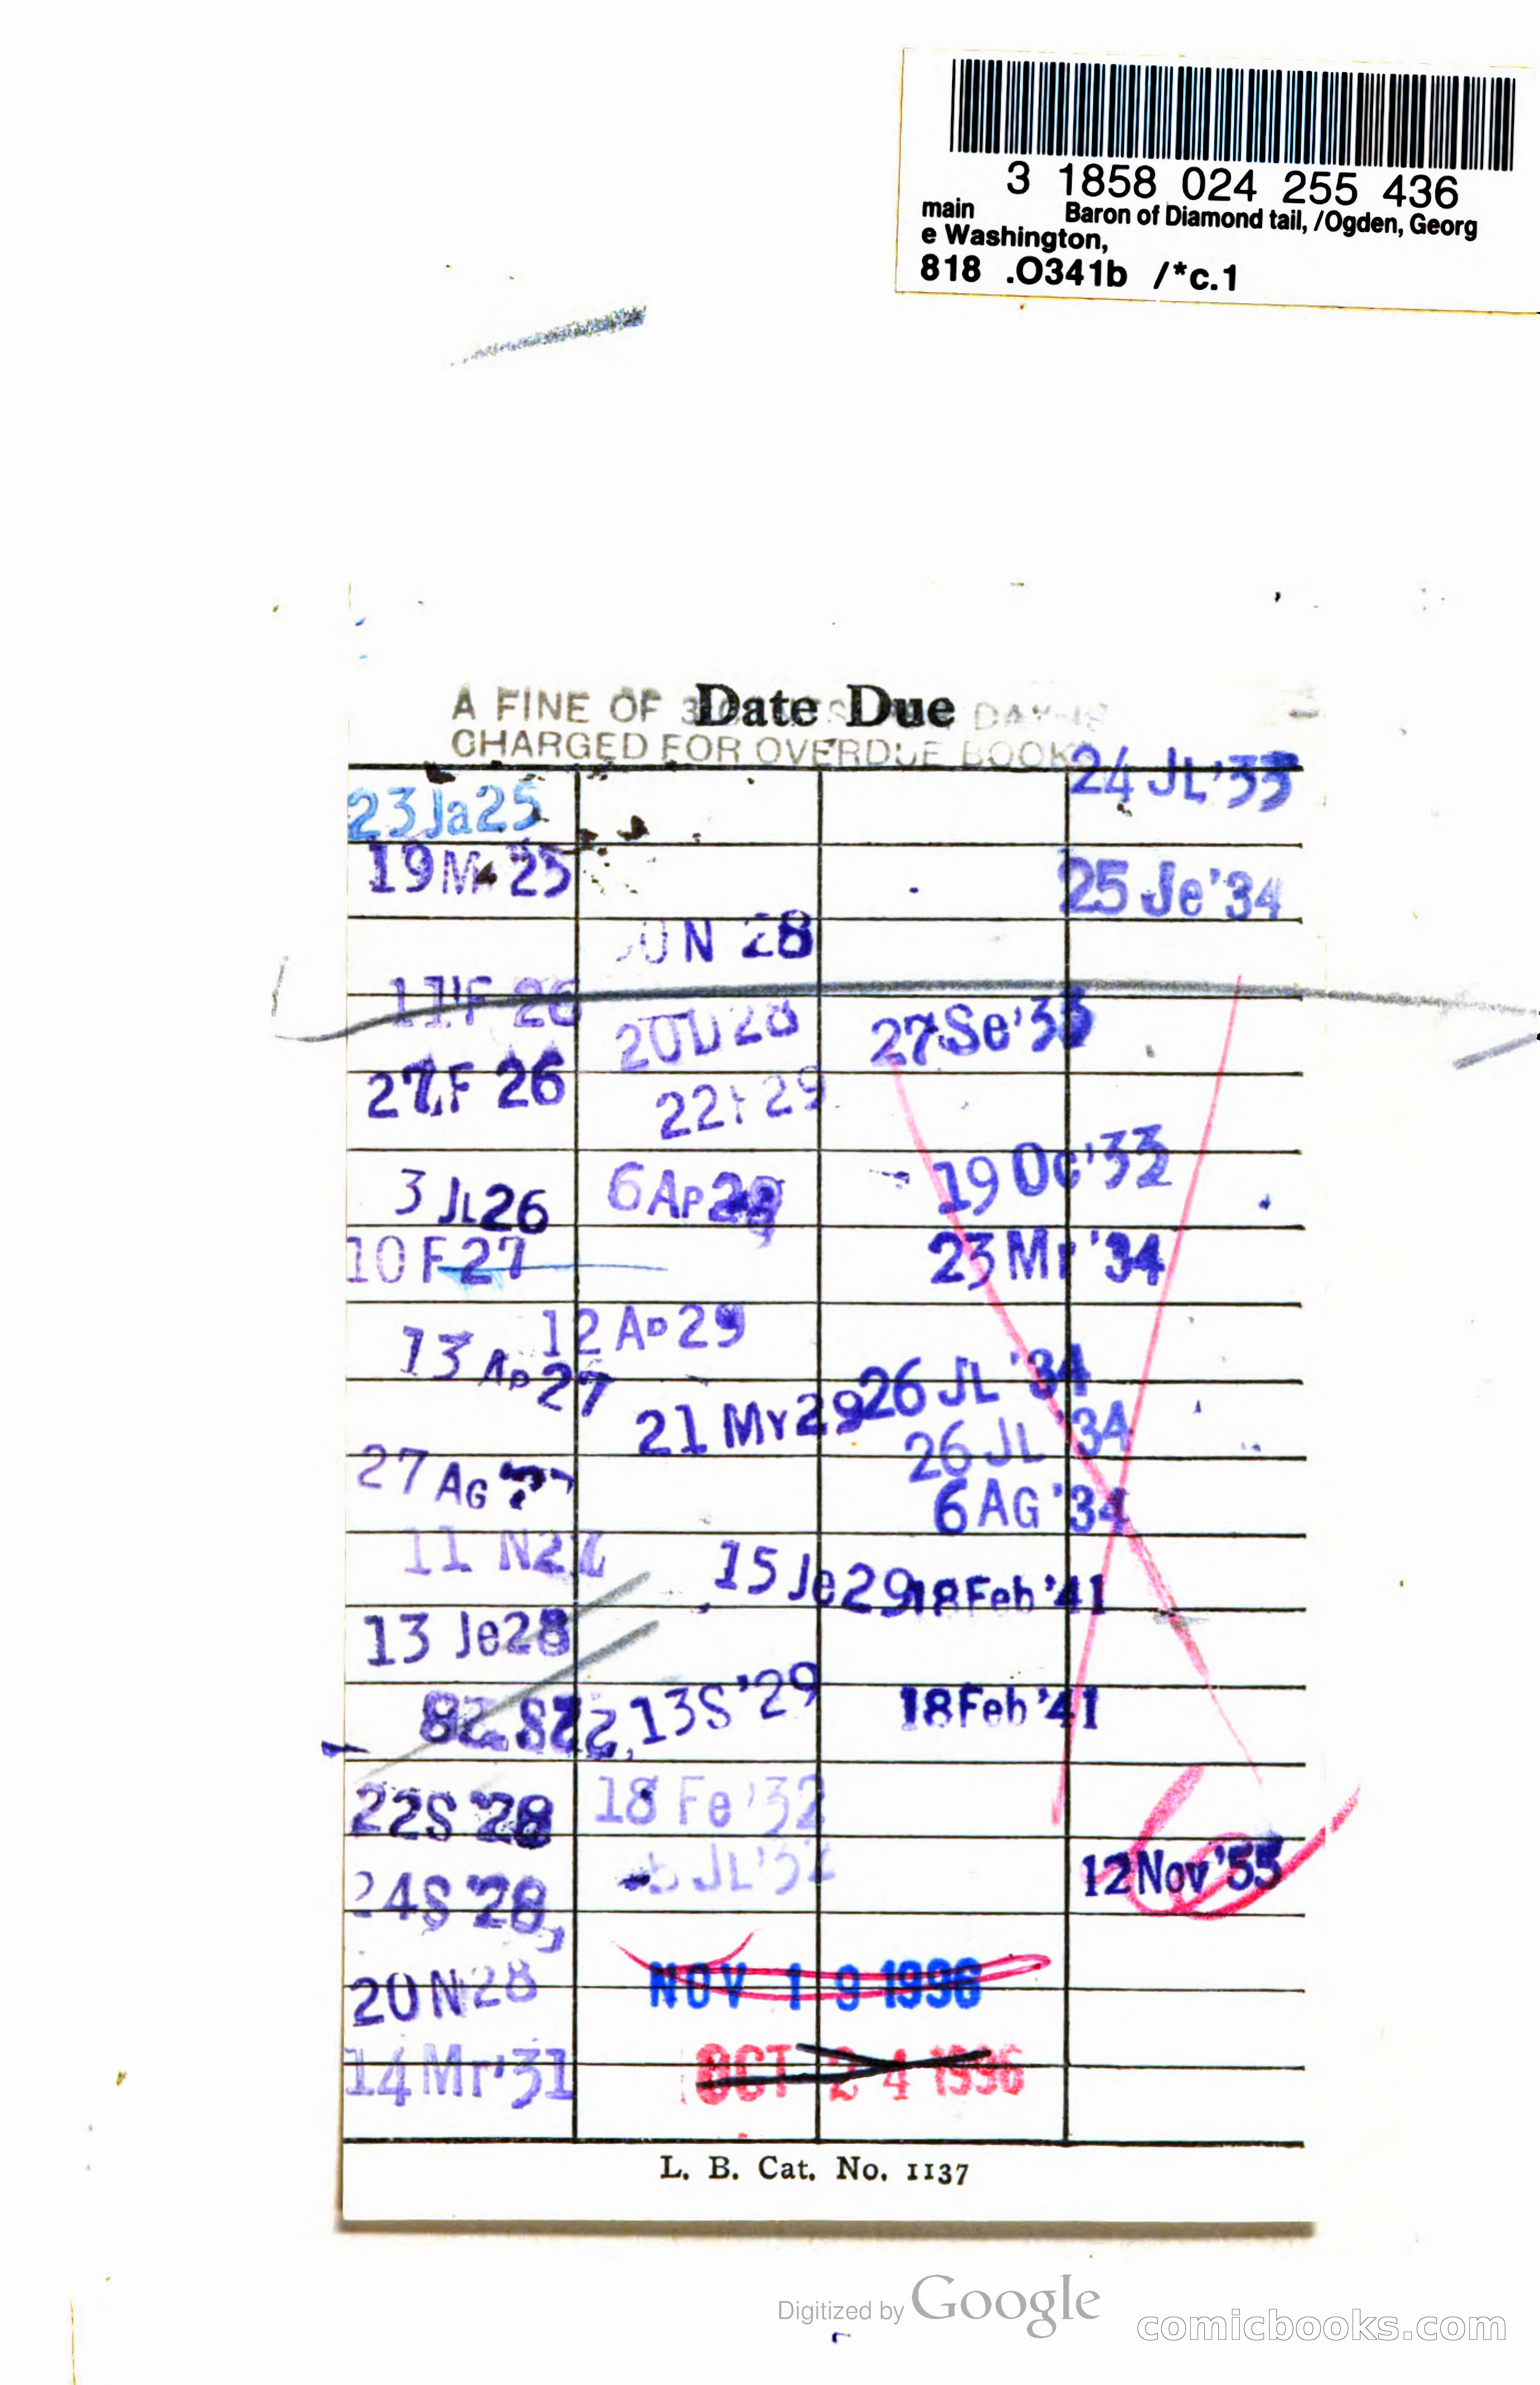 3 1858 024 255 436
main Baron of Diamond tail, /Ogden, Georg
e Washington,
818 .O341b /*c.1
Date Due
A FINE OF DAY
CHARGED FOR OVERDUE BOOK
24 JL '33
23 Ja 25
19 25
25 Je '34
28
11 F 26
27 Se '33
27 F 26
22 29
3 JL 26
6 Ap 29
19 Oc '33
10 F 27
23 Mr '34
12 Ap 29
13 Ap 27
26 JL '34
21 My 29
26 JL '34
27 AG
6 AG '34
11 N 27
15 Je 29
18 Feb '41
13 Je 28
22 S '28
13 S '29
18 Feb '41
22 S '28
18 Fe '32
24 S '28
JL '32
12 Nov '55
20 N 28
NOV 19 1996
14 Mr '31
OCT 24 1996
L. B. Cat. No. 1137
Digitized by Google
comicbooks.com